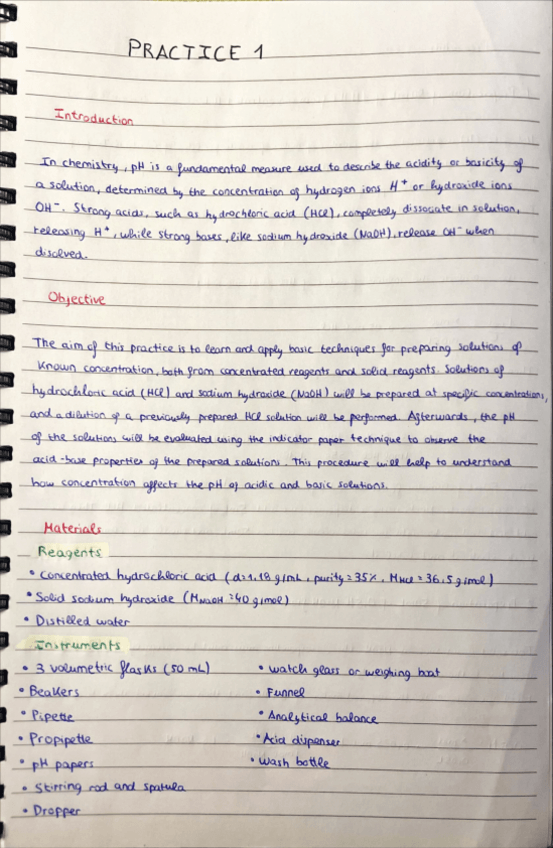 PRACTICE 1
Introduction
In chemistry, pH is a fundamental measure used to describe the acidity or basicity of
a solution, determined by the concentration of hydrogen ions H⁺ or hydroxide ions
OH⁻. Strong acids, such as hydrochloric acid (HCl), completely dissociate in solution,
releasing H⁺, while strong bases, like sodium hydroxide (NaOH), release OH⁻ when
disolved.
Objective
The aim of this practice is to learn and apply basic techniques for preparing solutions of
known concentration, both from concentrated reagents and solid reagents. Solutions of
hydrochloric acid (HCl) and sodium hydroxide (NaOH) will be prepared at specific concentrations,
and a dilution of a previously prepared HCl solution will be performed. Afterwards, the pH
of the solutions will be evaluated using the indicator paper technique to observe the
acid-base properties of the prepared solutions. This procedure will help to understand
how concentration affects the pH of acidic and basic solutions.
Materials
Reagents
• Concentrated hydrochloric acid (d=1.18 g/mL, purity=35%, MHCl=36.5 g/mol)
• Solid sodium hydroxide (MNaOH=40 g/mol)
• Distilled water
Instruments
• 3 volumetric flasks (50 mL)
• Beakers
• Pipette
• Propipette
• pH papers
• Stirring rod and spatula
• Dropper
• watch glass or weighing boat
• Funnel
• Analytical balance
• Acid dispenser
• Wash bottle